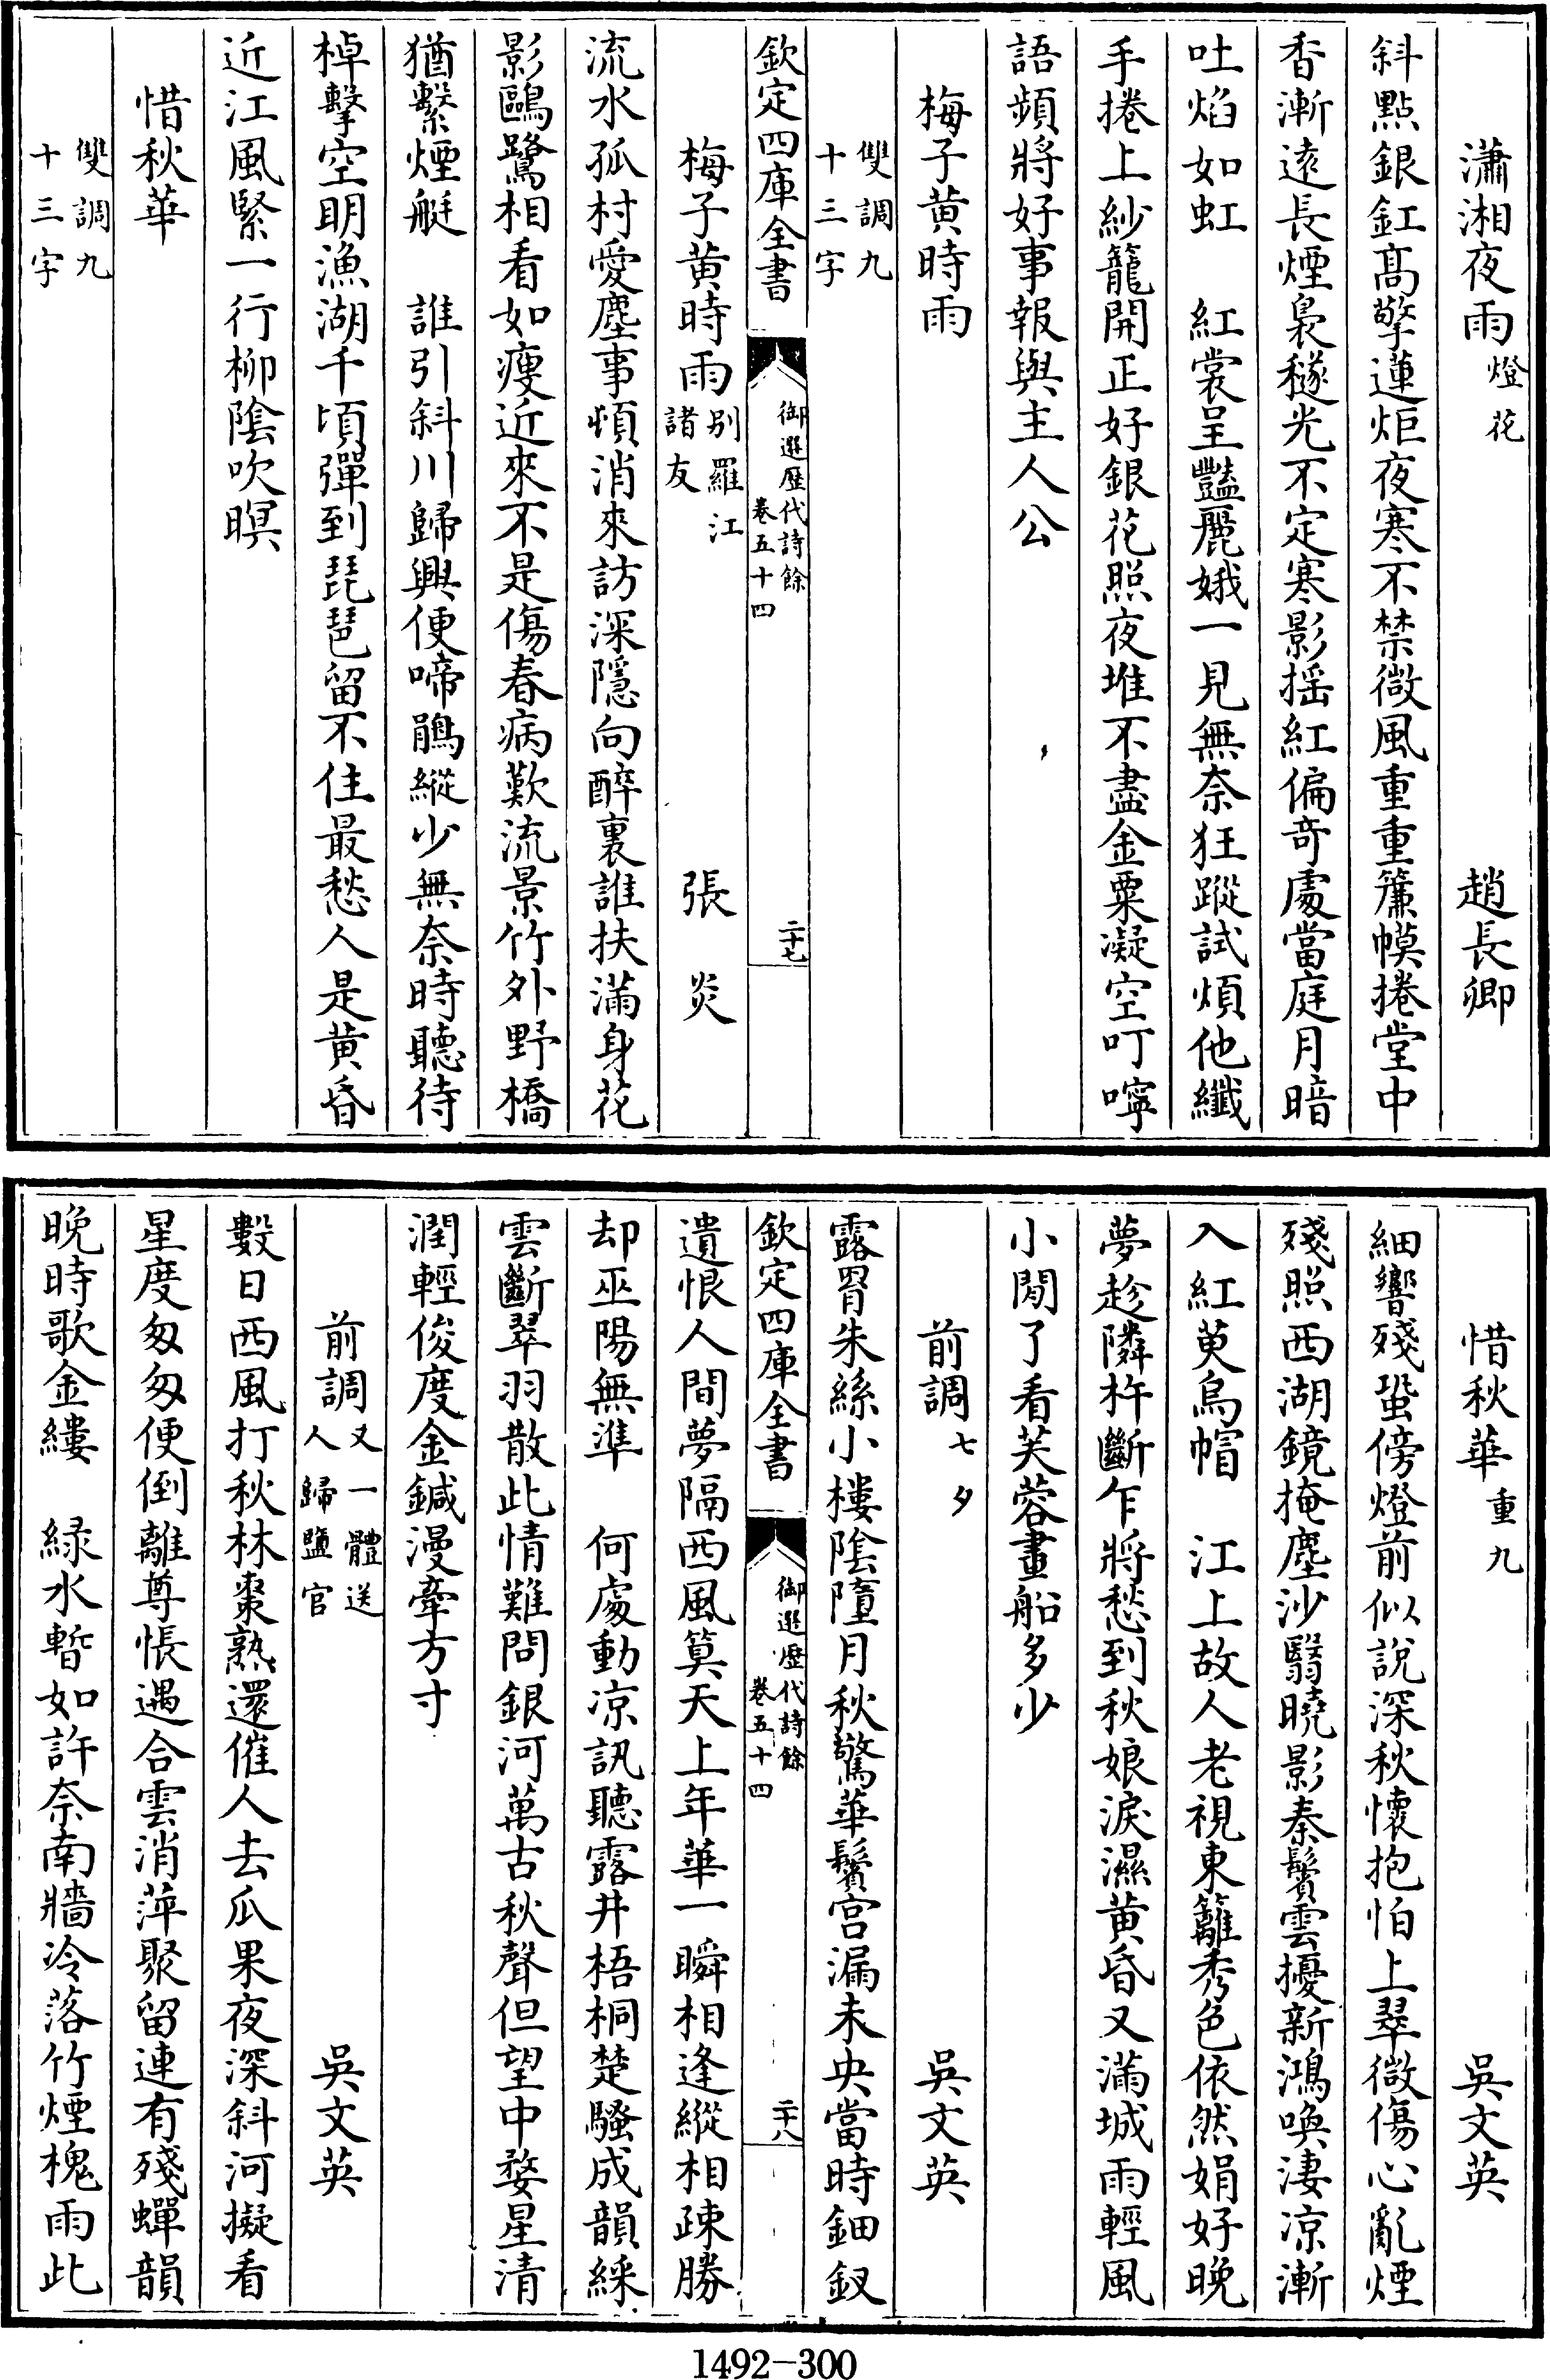 瀟湘夜雨燈花　趙長卿
斜點銀釭髙擎蓮炬夜寒不禁微風重重簾幙捲堂中
香漸逺長煙裊穟光不定寒影揺紅偏竒處當庭月暗
吐焰如虹　紅裳呈豔麗娥一見無奈狂蹤試煩他纖
手捲上紗籠開正好銀花照夜堆不盡金粟凝空叮嚀
語頻將好事報與主人公
梅子黄時雨
雙調九
十三字
欽定四庫全書
御選歴代詩餘
卷五十四
二十七
梅子黄時雨别羅江諸友　張炎
流水孤村愛塵事頓消來訪深隱向醉裏誰扶滿身花
影鷗鷺相看如瘦近來不是傷春病歎流景竹外野橋
猶繫煙艇　誰引斜川歸興便啼鵑縱少無奈時聽待
棹擊空明漁湖千頃彈到琵琶留不住最愁人是黄昏
近江風緊一行柳陰吹暝
惜秋華
雙調九
十三字
惜秋華重九　吳文英
細響殘蛩傍燈前似說深秋懷抱怕上翠微傷心亂煙
殘照西湖鏡掩塵沙翳曉影秦鬟雲擾新鴻喚淒凉漸
入紅萸烏帽　江上故人老視東籬秀色依然娟好晚
夢趁隣杵斷乍將愁到秋娘淚濕黄昏又滿城雨輕風
小閒了看芙蓉畫船多少
前調七夕　吳文英
露罥朱絲小樓陰墮月秋驚華鬢宫漏未央當時鈿釵
欽定四庫全書
御選歴代詩餘
卷五十四
二十八
遺恨人間夢隔西風筭天上年華一瞬相逢縱相疎勝
却巫陽無準　何處動凉訊聽露井梧桐楚騷成韻綵
雲斷翠羽散此情難問銀河萬古秋聲但望中婺星清
潤輕俊度金鍼漫牽方寸
前調又一體送人歸鹽官　吳文英
數日西風打秋林棗熟還催人去瓜果夜深斜河擬看
星度匆匆便倒離尊悵遇合雲消萍聚留連有殘蟬韻
晚時歌金縷　緑水暫如許奈南牆冷落竹煙槐雨此
1492-300